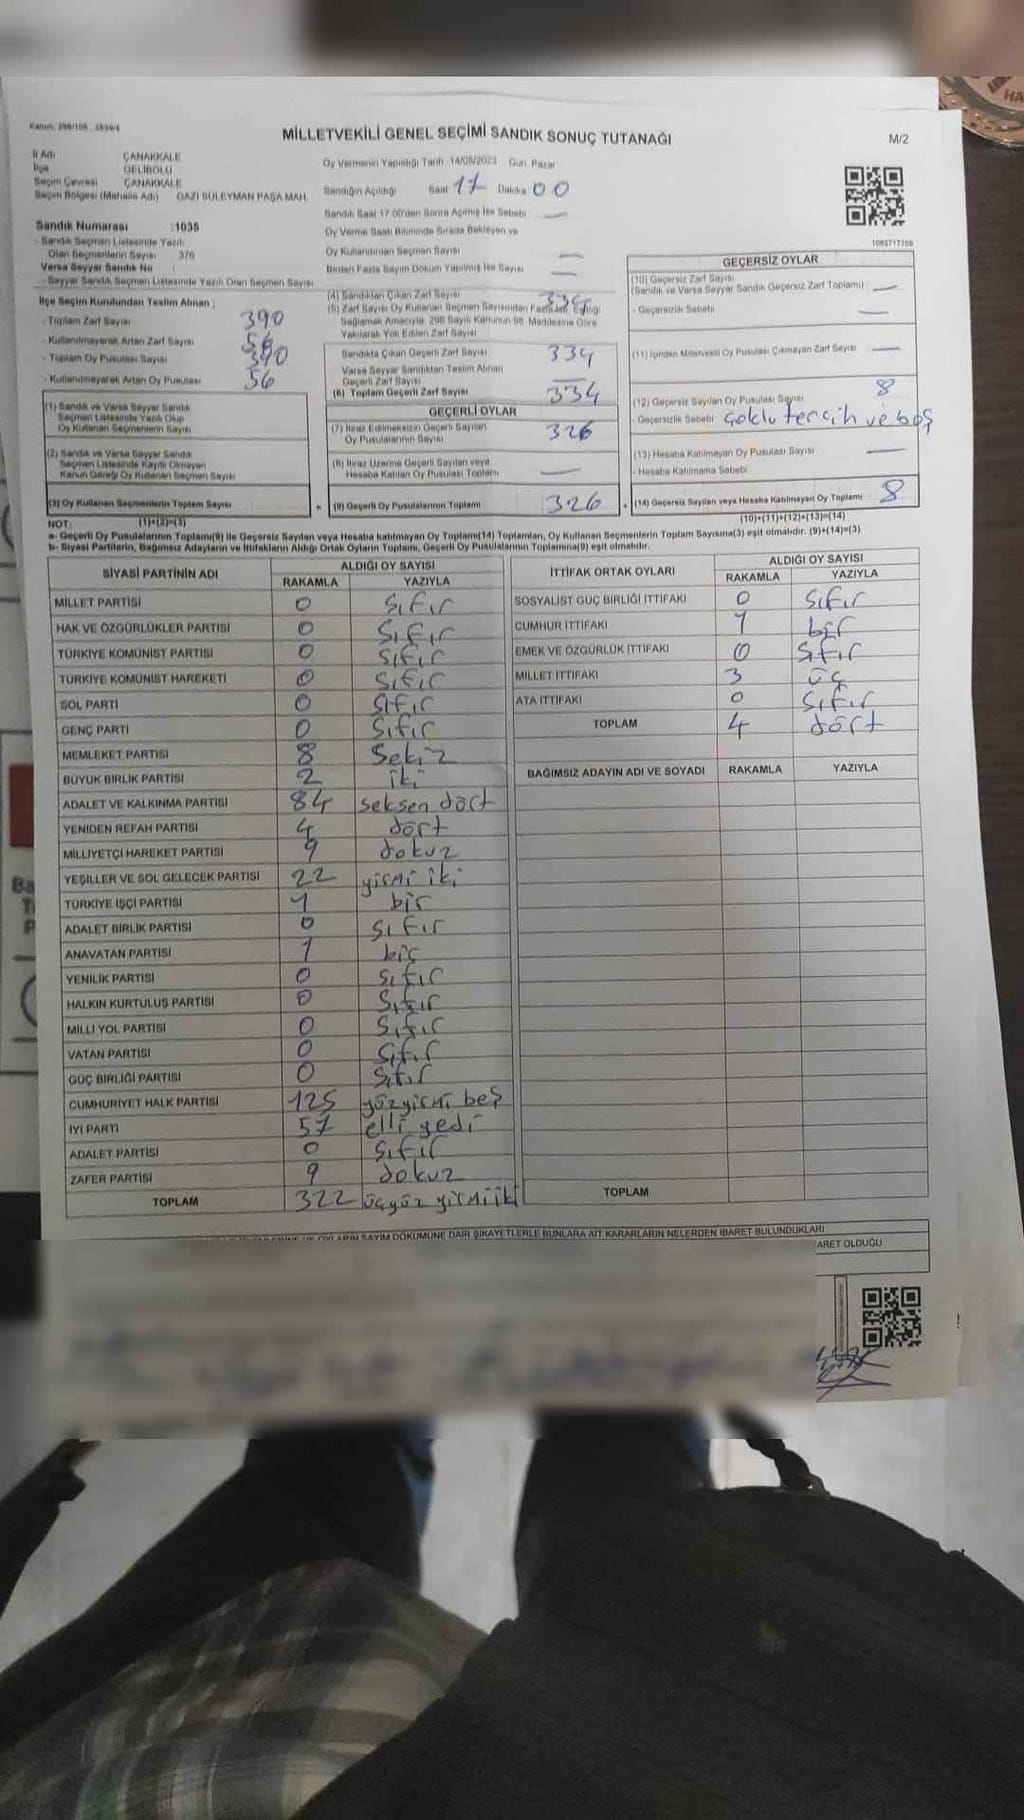 Kanun: 298/105 - 2839/4
MİLLETVEKİLİ GENEL SEÇİMİ SANDIK SONUÇ TUTANAĞI
M/2
İl Adı ÇANAKKALE
İlçe GELİBOLU
Seçim Çevresi ÇANAKKALE
Seçim Bölgesi (Mahalle Adı) GAZİ SÜLEYMAN PAŞA MAH.
Sandık Numarası :1035
- Sandık Seçmen Listesinde Yazılı
Olan Seçmenlerin Sayısı 376
Varsa Seyyar Sandık No
- Seyyar Sandık Seçmen Listesinde Yazılı Olan Seçmen Sayısı
Oy Vermenin Yapıldığı Tarih :14/05/2023 Gün: Pazar
Sandığın Açıldığı Saat 17 Dakika 00
Sandık Saat 17.00'den Sonra Açılmış İse Sebebi —
Oy Verme Saati Bitiminde Sırada Bekleyen ve
Oy Kullandırılan Seçmen Sayısı —
Birden Fazla Sayım Döküm Yapılmış İse Sayısı —
1083717109
İlçe Seçim Kurulundan Teslim Alınan ;
- Toplam Zarf Sayısı 390
- Kullanılmayarak Artan Zarf Sayısı 56
- Toplam Oy Pusulası Sayısı 390
- Kullanılmayarak Artan Oy Pusulası 56
(1) Sandık ve Varsa Seyyar Sandık
Seçmen Listesinde Yazılı Olup
Oy Kullanan Seçmenlerin Sayısı
(2) Sandık ve Varsa Seyyar Sandık
Seçmen Listesinde Kayıtlı Olmayan
Kanun Gereği Oy Kullanan Seçmen Sayısı
(3) Oy Kullanan Seçmenlerin Toplam Sayısı
(1)+(2)=(3)
(4) Sandıktan Çıkan Zarf Sayısı 334
(5) Zarf Sayısı Oy Kullanan Seçmen Sayısından Fazla ise, Eşitliği
Sağlamak Amacıyla, 298 Sayılı Kanunun 98. Maddesine Göre
Yakılarak Yok Edilen Zarf Sayısı
Sandıkta Çıkan Geçerli Zarf Sayısı 334
Varsa Seyyar Sandıktan Teslim Alınan
Geçerli Zarf Sayısı —
(6) Toplam Geçerli Zarf Sayısı 334
GEÇERLİ OYLAR
(7) İtiraz Edilmeksizin Geçerli Sayılan
Oy Pusulalarının Sayısı 326
(8) İtiraz Üzerine Geçerli Sayılan veya
Hesaba Katılan Oy Pusulası Toplamı —
= (9) Geçerli Oy Pusulalarının Toplamı 326 +
GEÇERSİZ OYLAR
(10) Geçersiz Zarf Sayısı
(Sandık ve Varsa Seyyar Sandık Geçersiz Zarf Toplamı) : —
- Geçersizlik Sebebi —
(11) İçinden Milletvekili Oy Pusulası Çıkmayan Zarf Sayısı —
(12) Geçersiz Sayılan Oy Pusulası Sayısı 8
- Geçersizlik Sebebi çoklu tercih ve boş
(13) Hesaba Katılmayan Oy Pusulası Sayısı —
- Hesaba Katılmama Sebebi
(14) Geçersiz Sayılan veya Hesaba Katılmayan Oy Toplamı 8
(10)+(11)+(12)+(13)=(14)
NOT:
a- Geçerli Oy Pusulalarının Toplamı(9) ile Geçersiz Sayılan veya Hesaba katılmayan Oy Toplamı(14) Toplamları, Oy Kullanan Seçmenlerin Toplam Sayısına(3) eşit olmalıdır. (9)+(14)=(3)
b- Siyasi Partilerin, Bağımsız Adayların ve İttifakların Aldığı Ortak Oyların Toplamı, Geçerli Oy Pusulalarının Toplamına(9) eşit olmalıdır.
SİYASİ PARTİNİN ADI ALDIĞI OY SAYISI
RAKAMLA YAZIYLA
MİLLET PARTİSİ 0 sıfır
HAK VE ÖZGÜRLÜKLER PARTİSİ 0 sıfır
TÜRKİYE KOMÜNİST PARTİSİ 0 sıfır
TÜRKİYE KOMÜNİST HAREKETİ 0 sıfır
SOL PARTİ 0 sıfır
GENÇ PARTİ 0 sıfır
MEMLEKET PARTİSİ 8 sekiz
BÜYÜK BİRLİK PARTİSİ 2 iki
ADALET VE KALKINMA PARTİSİ 84 seksen dört
YENİDEN REFAH PARTİSİ 4 dört
MİLLİYETÇİ HAREKET PARTİSİ 9 dokuz
YEŞİLLER VE SOL GELECEK PARTİSİ 22 yirmi iki
TÜRKİYE İŞÇİ PARTİSİ 1 bir
ADALET BİRLİK PARTİSİ 0 sıfır
ANAVATAN PARTİSİ 1 bir
YENİLİK PARTİSİ 0 sıfır
HALKIN KURTULUŞ PARTİSİ 0 sıfır
MİLLİ YOL PARTİSİ 0 sıfır
VATAN PARTİSİ 0 sıfır
GÜÇ BİRLİĞİ PARTİSİ 0 sıfır
CUMHURİYET HALK PARTİSİ 125 yüzyirmi beş
İYİ PARTİ 57 elli yedi
ADALET PARTİSİ 0 sıfır
ZAFER PARTİSİ 9 dokuz
TOPLAM 322 üçyüz yirmi iki
İTTİFAK ORTAK OYLARI ALDIĞI OY SAYISI
RAKAMLA YAZIYLA
SOSYALİST GÜÇ BİRLİĞİ İTTİFAKI 0 sıfır
CUMHUR İTTİFAKI 1 bir
EMEK VE ÖZGÜRLÜK İTTİFAKI 0 sıfır
MİLLET İTTİFAKI 3 üç
ATA İTTİFAKI 0 sıfır
TOPLAM 4 dört
BAĞIMSIZ ADAYIN ADI VE SOYADI RAKAMLA YAZIYLA
TOPLAM
OYLARIN SAYIM DÖKÜMÜNE DAİR ŞİKAYETLERLE BUNLARA AİT KARARLARIN NELERDEN İBARET BULUNDUKLARI
ARET OLDUĞU